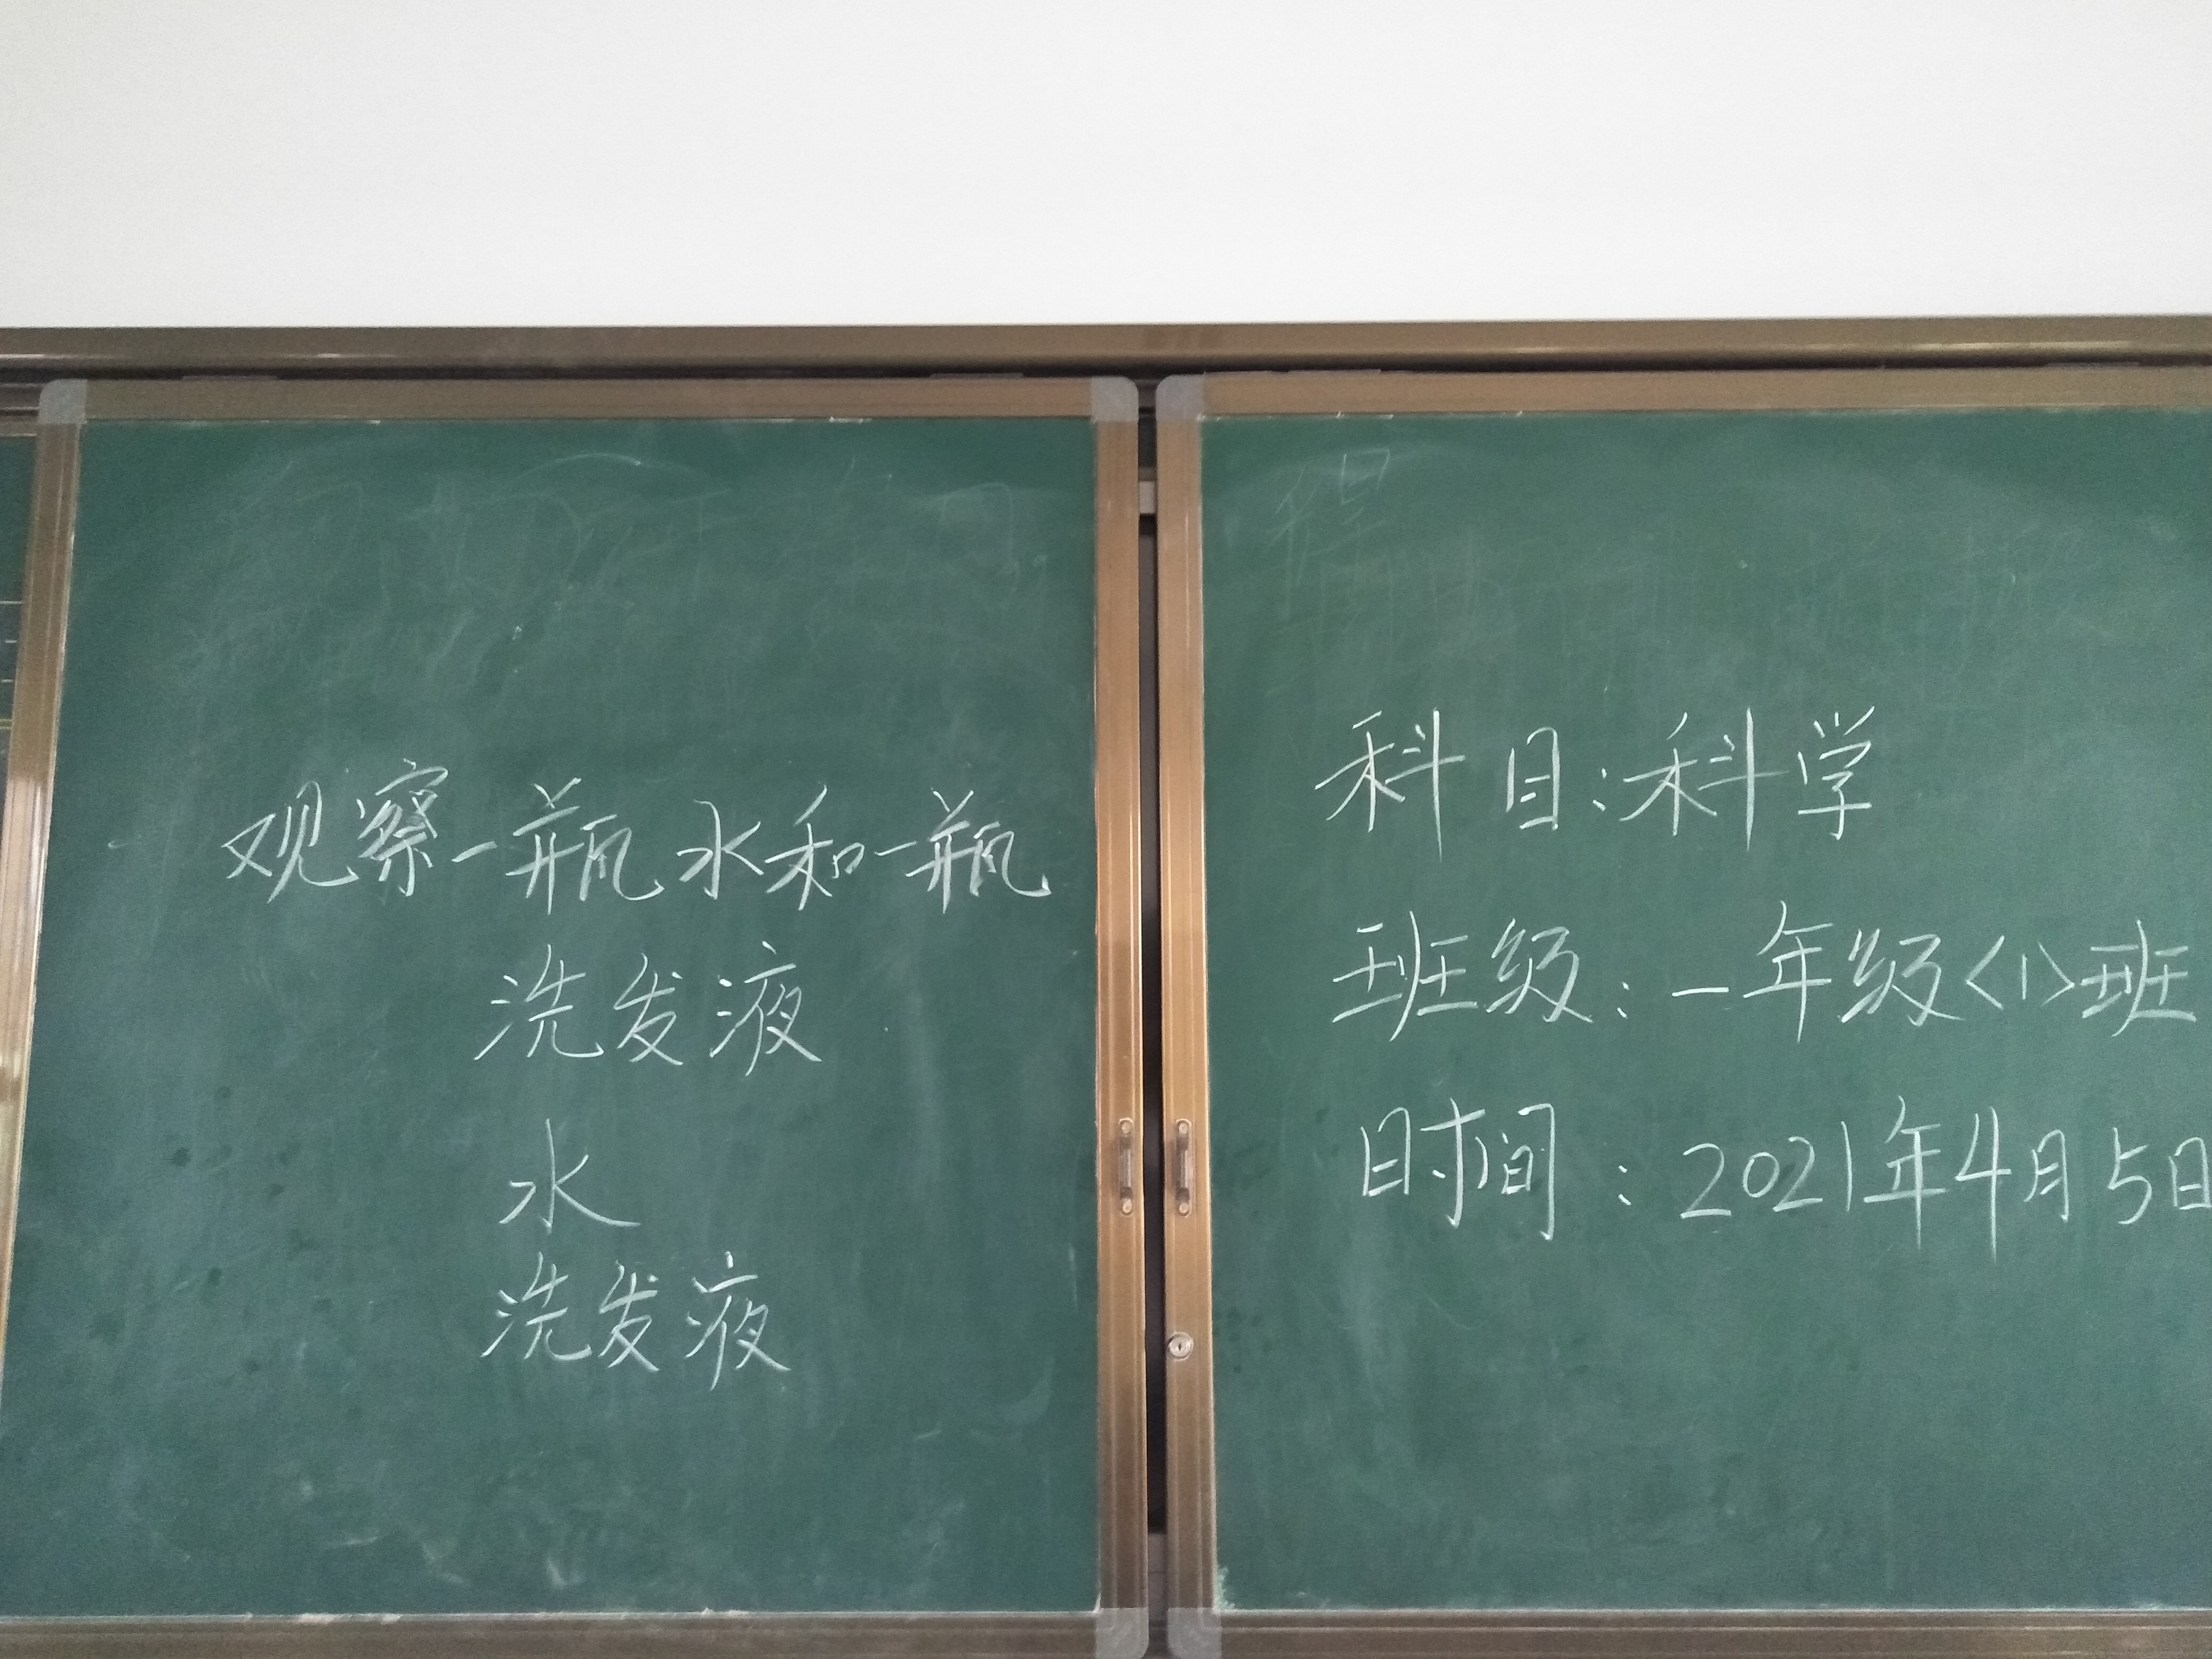 观察一瓶水和一瓶
洗发液
水
洗发液
科目:科学
班级:一年级<1>班
时间:2021年4月5日